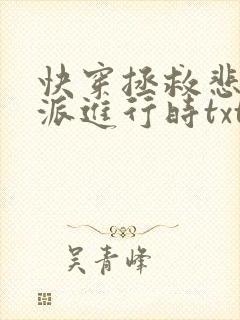 快穿拯救悲
派进行时txt
吴青峰